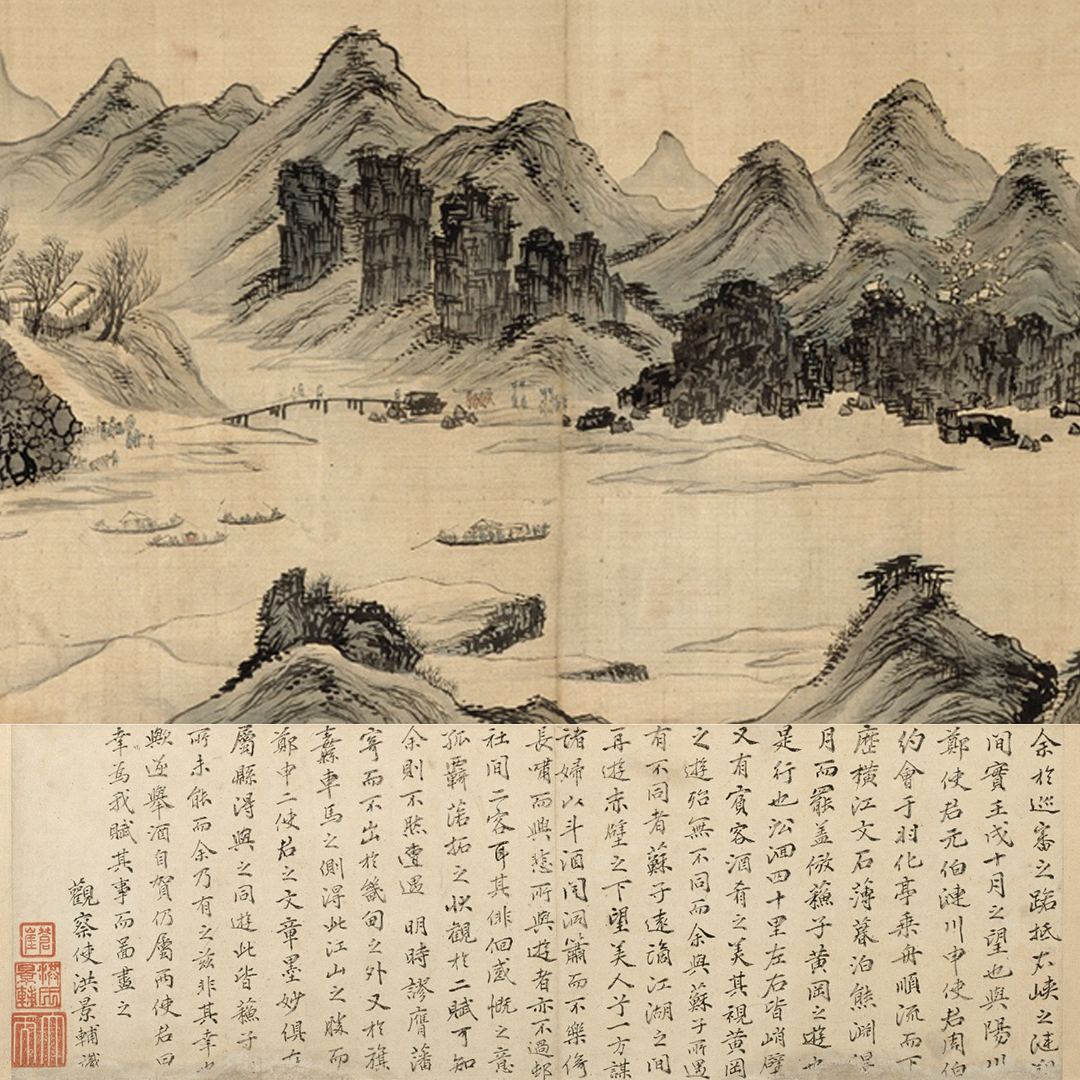 余於巡審之路抵右峽之漣
間實壬戌十月之望也與陽川
鄭使君元伯漣川申使君周伯
約會于羽化亭乘舟順流而下
歷橫江文石薄暮泊熊淵
月而罷盖倣蘓子黄岡之遊也
是行也沿洄四十里左右皆峭壁
又有賓客酒肴之美其視黄岡
之遊殆無不同而余與蘓子所遇
有不同者蘇子遠謫江湖之間
再遊赤壁之下望美人兮一方謀
諸婦以斗酒聞洞簫而不樂倚
長嘯而興悲所與遊者亦不過邨
社間二客耳其俳徊感慨之意
孤覊落拓之状觀於二賦可知
余則不然遭遇 明時謬膺藩
寄而不出於畿甸之外又於旗
纛車馬之側得此江山之勝而
鄭申二使君之文章墨妙俱在
屬縣得與之同遊此皆蘓子
所未能而余乃有之玆非其幸也
歟遂擧酒自賀仍屬兩使君曰
幸為我賦其事而啚畫之
觀察使洪景輔識
蒼崖